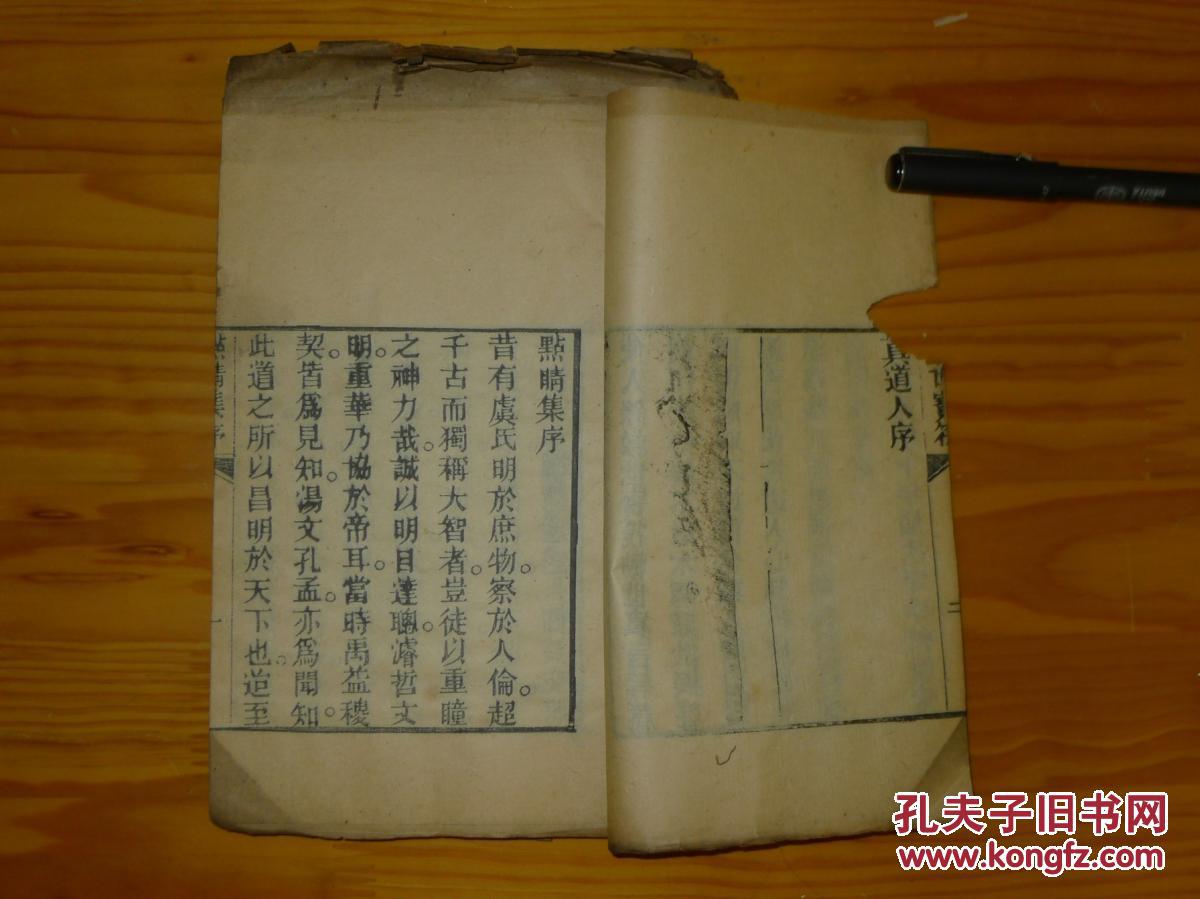 真道人序
點睛集序
昔有虞氏明於庶物。察於人倫。超
千古而獨稱大智者。豈徒以重瞳
之神力哉。誠以明目達聰。濬哲文
明。重華乃協於帝耳。當時禹益稷
契。皆爲見知。湯文孔孟。亦爲聞知。
此道之所以昌明於天下也。迨至
點睛集序
一
二
孔夫子旧书网
www.kongfz.com